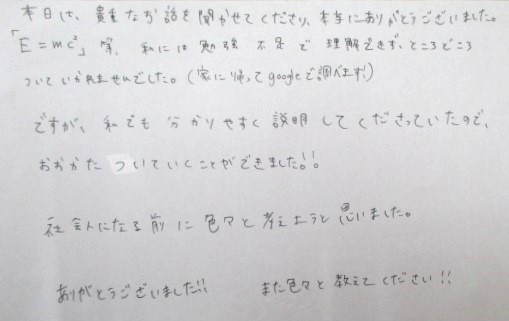 本日は、貴重なお話を聞かせてくださり、本当にありがとうございました。
「E=mc²」等、私には勉強不足で理解できず、ところどころ
ついていかれませんでした。(家に帰ってgoogleで調べます!)
ですが、私でも分かりやすく説明してくださっていたので、
おおかたついていくことができました!!
社会人になる前に色々と考えようと思いました。
ありがとうございました!! また色々と教えてください!!